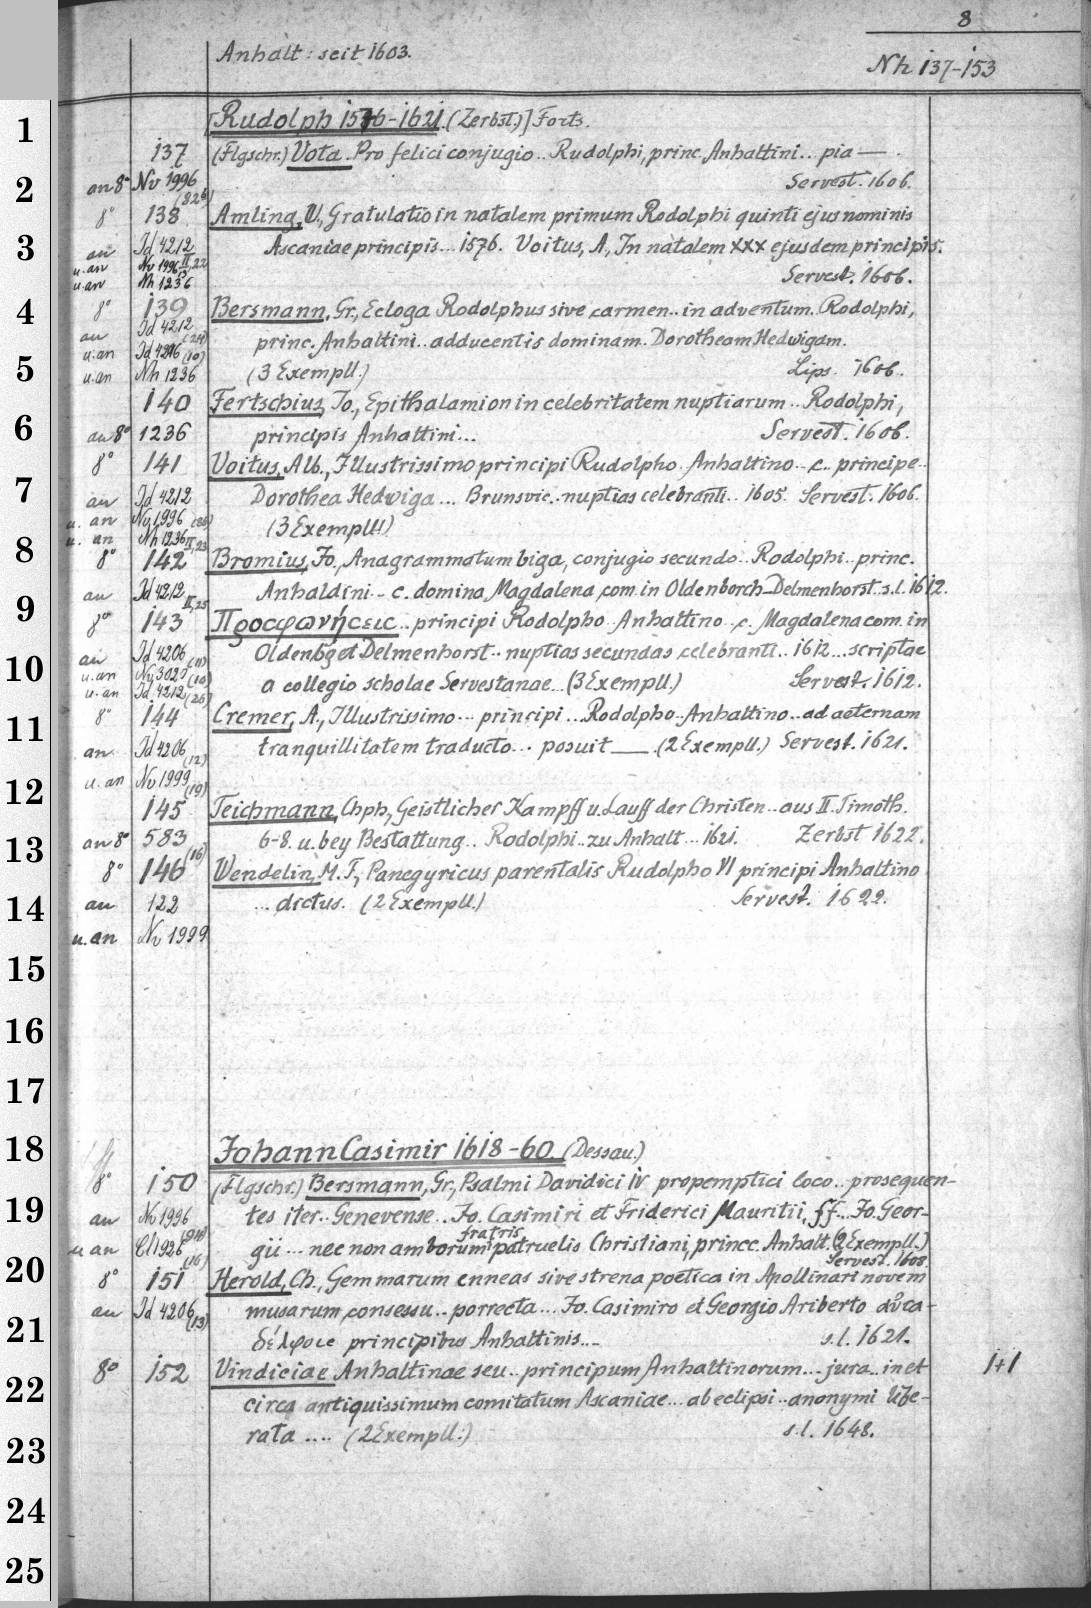 8
Anhalt: seit 1603.
Nh 137-153
1
[Rudolph 1576-1621. (Zerbst.)] Forts.
137 (Flgschr.) Vota. Pro felici conjugio.. Rudolphi, princ. Anhaltini... pia — .
2
an 8° Nv 1996 Servest. 1606.
(826)
8° 138 Amling, W., Gratulatio in natalem primum Rodolphi quinti ejus nominis
3
an Id 4212 Ascaniae principis... 1576. Voitus, A., In natalem XXX ejusdem principis.
u. an Nv 1996 II, 22
u. an Nh 1236 Servest. 1606.
4
8° 139 Bersmann, Gr., Ecloga Rodolphus sive carmen.. in adventum. Rodolphi,
an Id 4212 (24) princ. Anhaltini.. adducentis dominam. Dorotheam Hedwigam.
u. an Id 4216 (10)
5
u. an Nh 1236 (3 Exempll.) Lips. 1606.
140 Fertschius, Jo., Epithalamion in celebritatem nuptiarum.. Rodolphi,
6
an 8° 1236 principis Anhaltini... Servest. 1606.
8° 141 Voitus, Alb., Illustrissimo principi Rudolpho. Anhaltino.. c. principe..
7
an Id 4212 Dorothea Hedwiga... Brunsvic.. nuptias celebranti.. 1605. Servest. 1606.
u. an Nv 1996
u. an Nh 1236 II, 23 (3 Exempll.)
8
8° 142 Bromius, Jo., Anagrammotum biga, conjugio secundo.. Rodolphi.. princ.
9
an Id 4212 II, 25 Anhaldini.. c. domina Magdalena, com. in Oldenborch Delmenhorst. s.l. 1612.
8° 143 Προσφωνήσεις.. principi Rodolpho Anhaltino.. c. Magdalena com. in
10
an Id 4206 (11) Oldenbg et Delmenhorst.. nuptias secundas celebranti.. 1612... scriptae
u. an Nv 3025 (10)
u. an Id 4212 (26) a collegio scholae Servestanae... (3 Exempll.) Servest. 1612.
11
8° 144 Cremer, A., Illustrissimo... principi... Rodolpho.. Anhaltino.. ad aeternam
an Id 4206 (12) tranquillitatem traducto... posuit — . (2 Exempll.) Servest. 1621.
12
u. an Nv 1999 (19)
145 Teichmann, Chph., Geistlicher Kampff u. Lauff der Christen.. aus II. Timoth.
13
an 8° 583 (16) 6-8. u. bey Bestattung.. Rodolphi.. zu Anhalt... 1621. Zerbst 1622.
8° 146 Wendelin, M. F., Panegyricus parentalis Rudolpho VI principi Anhaltino
14
an 122 ... dictus. (2 Exempll.) Servest. 1622.
u. an Nv 1999
15
16
17
18
Johann Casimir 1618-60. (Dessau.)
8° 150 (Flgschr.) Bersmann, Gr., Psalmi Davidici IV propemptici loco.. prosequen-
19
an Nv 1996 tes iter.. Genevense.. Jo. Casimiri et Friderici Mauritii, ff... Jo. Geor-
fratris
u an Cl 1926 (16) gii... nec non amborum patruelis Christiani, princc. Anhalt. (2 Exempll.)
Servest. 1608.
20
8° 151 Herold, Ch., Gemmarum enneas sive strena poëtica in Apollinari novem
an Id 4206 (13) musarum consessu.. porrecta... Jo. Casimiro et Georgio Ariberto
21
δέλφοις principibus Anhaltinis... s.l. 1621.
8° 152 Vindiciae Anhaltinae seu.. principum Anhaltinorum... jura.. in et 1+1
22
circa antiquissimum comitatum Ascaniae... ab eclipsi.. anonymi libe-
23
rata .... (2 Exempll.) s.l. 1648.
24
25